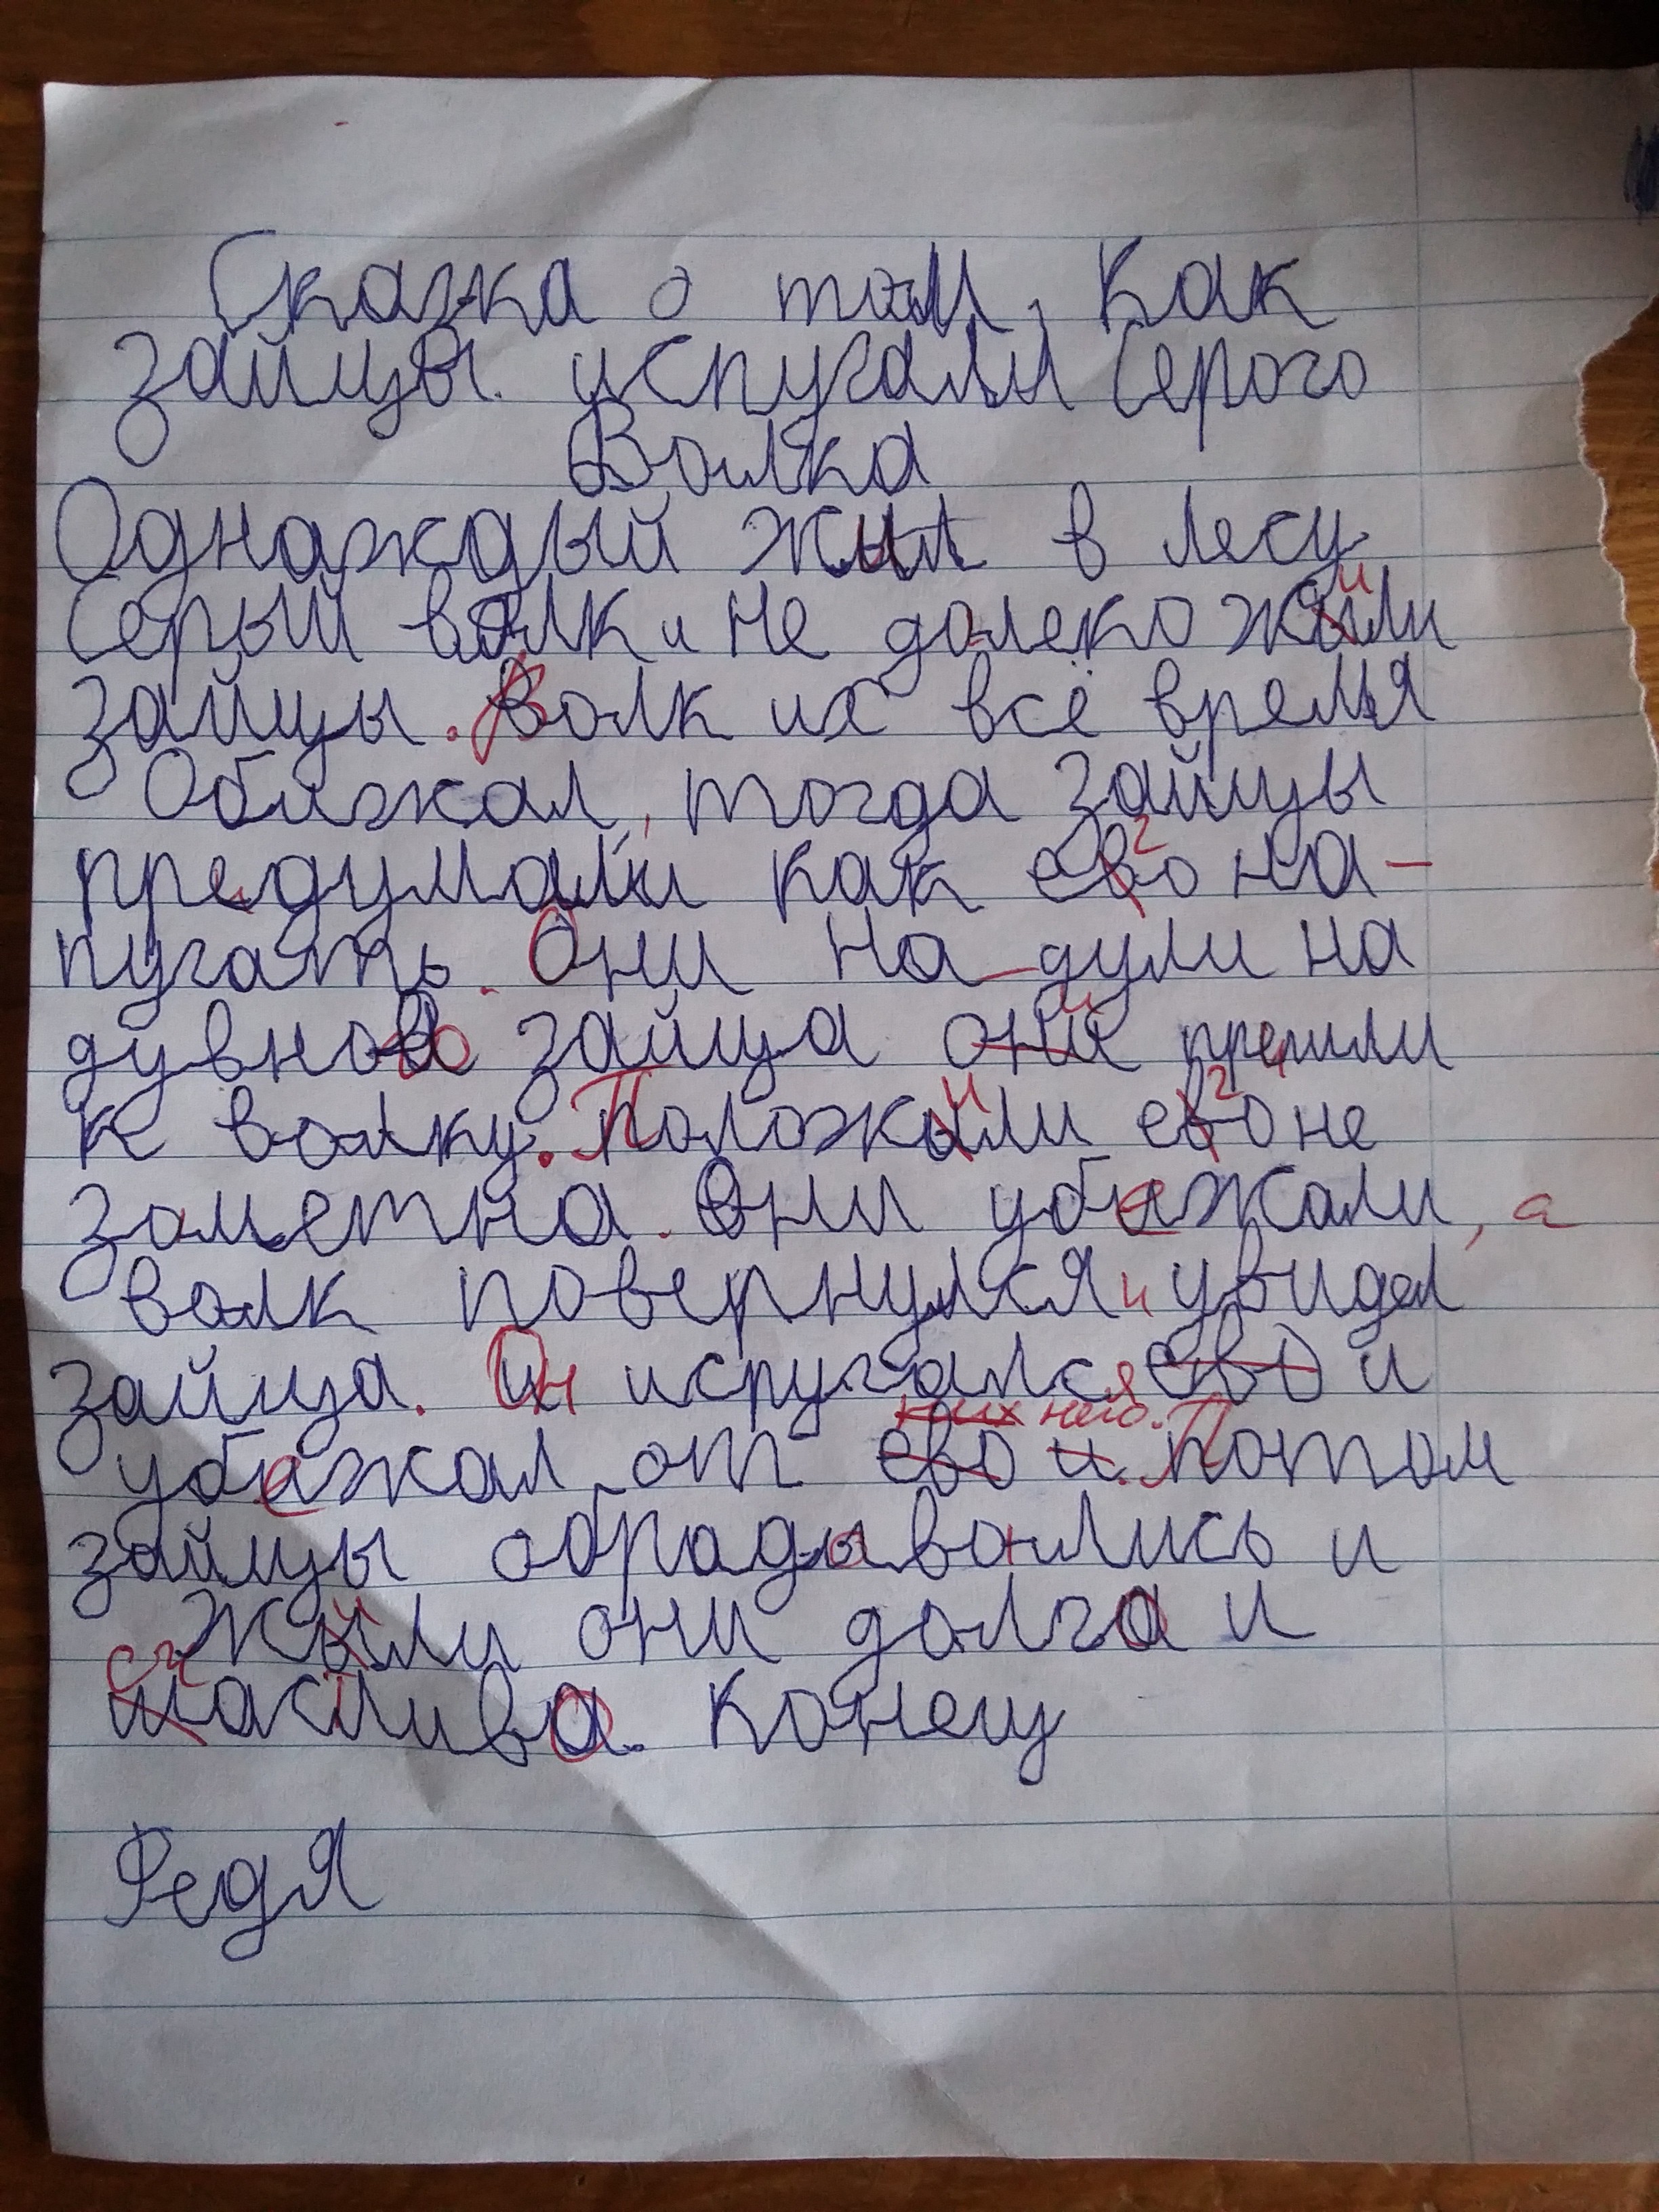 Сказка о том, Как
зайцы испугали Серого
Волка
Однаждый жил в лесу
Серый волк и не далеко жыли
зайцы. Волк их всё время
Обижал, тогда зайцы
предумали как ево на-
пугать. Они на дули на
дувнова зайца они прешли
к волку. Положыли ево не
заметна. Они убижали, а
волк повернулся и увидел
зайца. Он испугался ево и
них него.
убежал от ево и. Потом
зайцы обрадывались и
Жыли они долго и
щасливо. конец
Федя